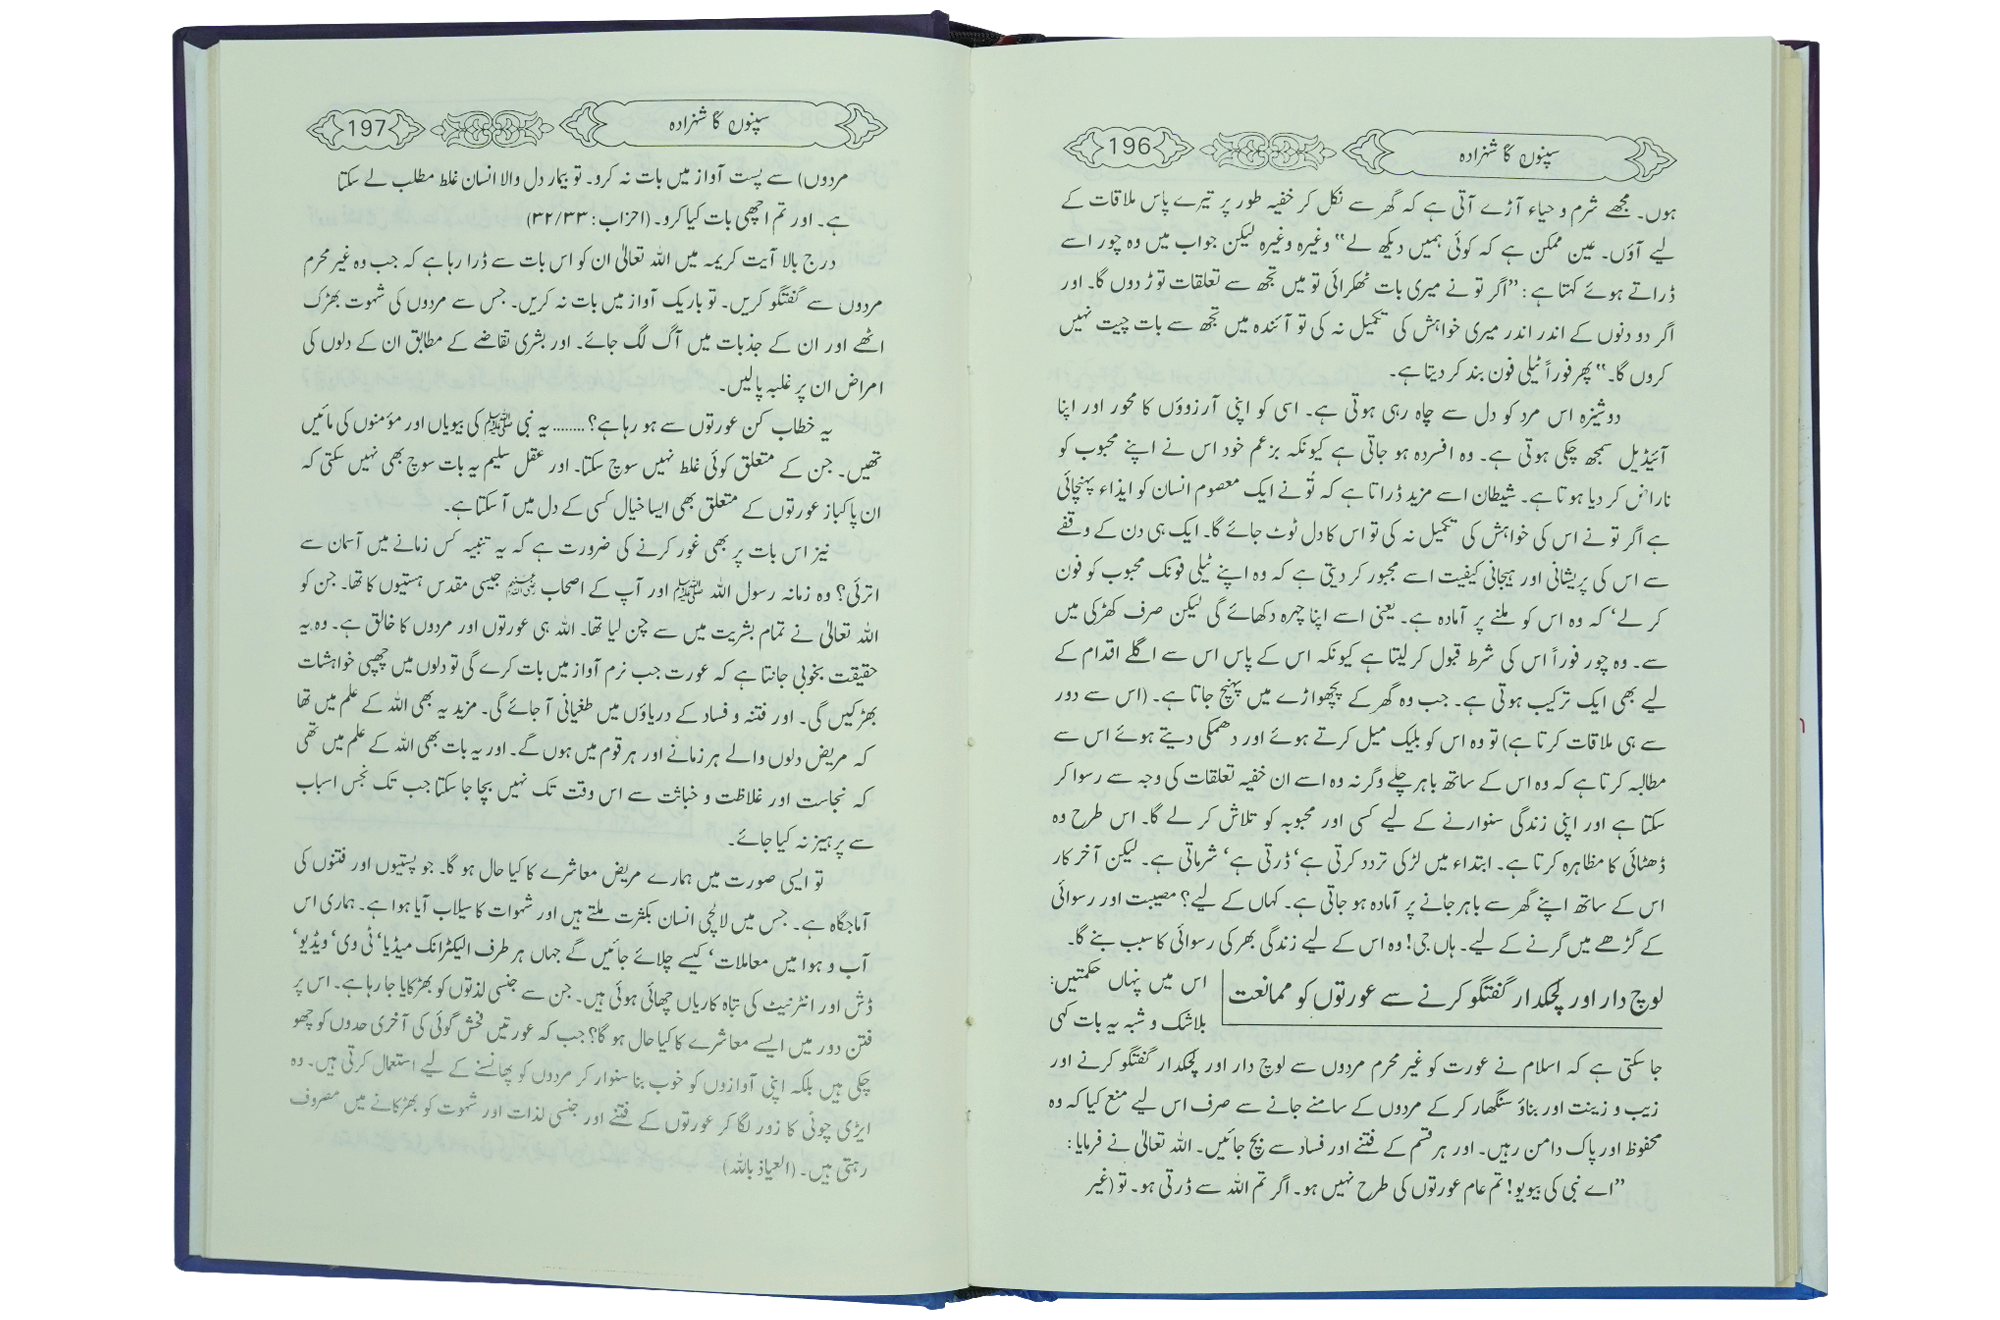 سپنوں کا شہزادہ 196
ہوں۔ مجھے شرم و حیاء آڑے آتی ہے کہ گھر سے نکل کر خفیہ طور پر تیرے پاس ملاقات کے
لیے آؤں۔ عین ممکن ہے کہ کوئی ہمیں دیکھ لے“ وغیرہ وغیرہ لیکن جواب میں وہ چور اسے
ڈراتے ہوئے کہتا ہے: ”اگر تو نے میری بات ٹھکرائی تو میں تجھ سے تعلقات توڑ دوں گا۔ اور
اگر دو دنوں کے اندر اندر میری خواہش کی تکمیل نہ کی تو آئندہ میں تجھ سے بات چیت نہیں
کروں گا۔“ پھر فوراً ٹیلی فون بند کر دیتا ہے۔
دوشیزہ اس مرد کو دل سے چاہ رہی ہوتی ہے۔ اسی کو اپنی آرزوؤں کا محور اور اپنا
آئیڈیل سمجھ چکی ہوتی ہے۔ وہ افسردہ ہو جاتی ہے کیونکہ بزعم خود اس نے اپنے محبوب کو
ناراض کر دیا ہوتا ہے۔ شیطان اسے مزید ڈراتا ہے کہ تُو نے ایک معصوم انسان کو ایذاء پہنچائی
ہے اگر تو نے اس کی خواہش کی تکمیل نہ کی تو اس کا دل ٹوٹ جائے گا۔ ایک ہی دن کے وقفے
سے اس کی پریشانی اور ہیجانی کیفیت اسے مجبور کر دیتی ہے کہ وہ اپنے ٹیلی فونک محبوب کو فون
کر لے‘ کہ وہ اس کو ملنے پر آمادہ ہے۔ یعنی اسے اپنا چہرہ دکھائے گی لیکن صرف کھڑکی میں
سے۔ وہ چور فوراً اس کی شرط قبول کر لیتا ہے کیونکہ اس کے پاس اس سے اگلے اقدام کے
لیے بھی ایک ترکیب ہوتی ہے۔ جب وہ گھر کے پچھواڑے میں پہنچ جاتا ہے۔ (اس سے دور
سے ہی ملاقات کرتا ہے) تو وہ اس کو بلیک میل کرتے ہوئے اور دھمکی دیتے ہوئے اس سے
مطالبہ کرتا ہے کہ وہ اس کے ساتھ باہر چلے وگرنہ وہ اسے ان خفیہ تعلقات کی وجہ سے رسوا کر
سکتا ہے اور اپنی زندگی سنوارنے کے لیے کسی اور محبوبہ کو تلاش کر لے گا۔ اس طرح وہ
ڈھٹائی کا مظاہرہ کرتا ہے۔ ابتداء میں لڑکی تردد کرتی ہے‘ ڈرتی ہے‘ شرماتی ہے۔ لیکن آخر کار
اس کے ساتھ اپنے گھر سے باہر جانے پر آمادہ ہو جاتی ہے۔ کہاں کے لیے؟ مصیبت اور رسوائی
کے گڑھے میں گرنے کے لیے۔ ہاں جی! وہ اس کے لیے زندگی بھر کی رسوائی کا سبب بنے گا۔
لوچ دار اور لچکدار گفتگو کرنے سے عورتوں کو ممانعت
اس میں پنہاں حکمتیں:
بلاشک و شبہ یہ بات کہی
جا سکتی ہے کہ اسلام نے عورت کو غیر محرم مردوں سے لوچ دار اور لچکدار گفتگو کرنے اور
زیب و زینت اور بناؤ سنگھار کر کے مردوں کے سامنے جانے سے صرف اس لیے منع کیا کہ وہ
محفوظ اور پاک دامن رہیں۔ اور ہر قسم کے فتنے اور فساد سے بچ جائیں۔ اللہ تعالیٰ نے فرمایا:
”اے نبی کی بیویو! تم عام عورتوں کی طرح نہیں ہو۔ اگر تم اللہ سے ڈرتی ہو۔ تو (غیر
سپنوں کا شہزادہ 197
مردوں) سے پست آواز میں بات نہ کرو۔ تو بیمار دل والا انسان غلط مطلب لے سکتا
ہے۔ اور تم اچھی بات کیا کرو۔ (احزاب: ۳۲/۳۳)
درج بالا آیت کریمہ میں اللہ تعالیٰ ان کو اس بات سے ڈرا رہا ہے کہ جب وہ غیر محرم
مردوں سے گفتگو کریں۔ تو باریک آواز میں بات نہ کریں۔ جس سے مردوں کی شہوت بھڑک
اٹھے اور ان کے جذبات میں آگ لگ جائے۔ اور بشری تقاضے کے مطابق ان کے دلوں کی
امراض ان پر غلبہ پالیں۔
یہ خطاب کن عورتوں سے ہو رہا ہے؟ ........ یہ نبی ﷺ کی بیویاں اور مؤمنوں کی مائیں
تھیں۔ جن کے متعلق کوئی غلط نہیں سوچ سکتا۔ اور عقل سلیم یہ بات سوچ بھی نہیں سکتی کہ
ان پاکباز عورتوں کے متعلق بھی ایسا خیال کسی کے دل میں آ سکتا ہے۔
نیز اس بات پر بھی غور کرنے کی ضرورت ہے کہ یہ تنبیہ کس زمانے میں آسمان سے
اترئی؟ وہ زمانہ رسول اللہ ﷺ اور آپ کے اصحاب جیسی مقدس ہستیوں کا تھا۔ جن کو
اللہ تعالیٰ نے تمام بشریت میں سے چن لیا تھا۔ اللہ ہی عورتوں اور مردوں کا خالق ہے۔ وہ یہ
حقیقت بخوبی جانتا ہے کہ عورت جب نرم آواز میں بات کرے گی تو دلوں میں چھپی خواہشات
بھڑکیں گی۔ اور فتنہ و فساد کے دریاؤں میں طغیانی آ جائے گی۔ مزید یہ بھی اللہ کے علم میں تھا
کہ مریض دلوں والے ہر زمانے اور ہر قوم میں ہوں گے۔ اور یہ بات بھی اللہ کے علم میں تھی
کہ نجاست اور غلاظت و خباثت سے اس وقت تک نہیں بچا جا سکتا جب تک نجس اسباب
سے پرہیز نہ کیا جائے۔
تو ایسی صورت میں ہمارے مریض معاشرے کا کیا حال ہو گا۔ جو پستیوں اور فتنوں کی
آماجگاہ ہے۔ جس میں لالچی انسان بکثرت ملتے ہیں اور شہوات کا سیلاب آیا ہوا ہے۔ ہماری اس
آب و ہوا میں معاملات‘ کیسے چلائے جائیں گے جہاں ہر طرف الیکٹرانک میڈیا‘ ٹی وی‘ ویڈیو‘
ڈش اور انٹرنیٹ کی تباہ کاریاں چھائی ہوئی ہیں۔ جن سے جنسی لذتوں کو بھڑکایا جا رہا ہے۔ اس پر
فتن دور میں ایسے معاشرے کا کیا حال ہو گا؟ جب کہ عورتیں فحش گوئی کی آخری حدوں کو چھو
چکی ہیں بلکہ اپنی آوازوں کو خوب بنا سنوار کر مردوں کو پھانسنے کے لیے استعمال کرتی ہیں۔ وہ
ایڑی چوٹی کا زور لگا کر عورتوں کے فتنے اور جنسی لذات اور شہوت کو بھڑکانے میں مصروف
رہتی ہیں۔ (العیاذ باللہ)